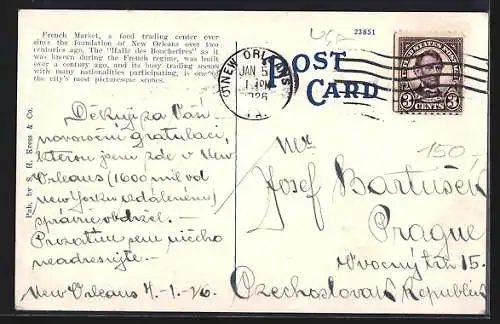 French Market, a food trading center ever
since the foundation of New Orleans over two
centuries ago. The "Halle des Boucheries" as it
was known during the French regime, was built
over a century ago, and its busy trading scenes
with many nationalities participating, is one of
the city's most picturesque scenes.
23851
NEW ORLEANS
JAN 5
1 PM
1926
LA
POST
CARD
UNITED STATES POSTAGE
3 CENTS 3
Pub. by S. H. Kress & Co.
Děkuji za Vaši
novoroční gratulaci,
kterou jsem zde v New
Orleans (1600 mil od
New Yorku vzdáleném)
správně obdržel. –
Prozatím sem ničeho
neadresujte. –
New Orleans 4.-1.-26.
150,-
Mr
Josef Bartůšek
Prague
Ovocný trh 15.
Czechoslovak Republik